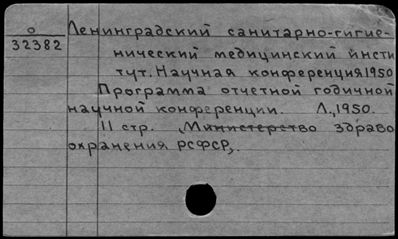 О
32382
Ленинградский санитарно-гигие-
нический медицинский инсти
тут. Научная конференция 1950
Программа отчетной годичной
научной конференции. Л., 1950.
11 стр. „Министерство здраво
охранения РСФСР„.